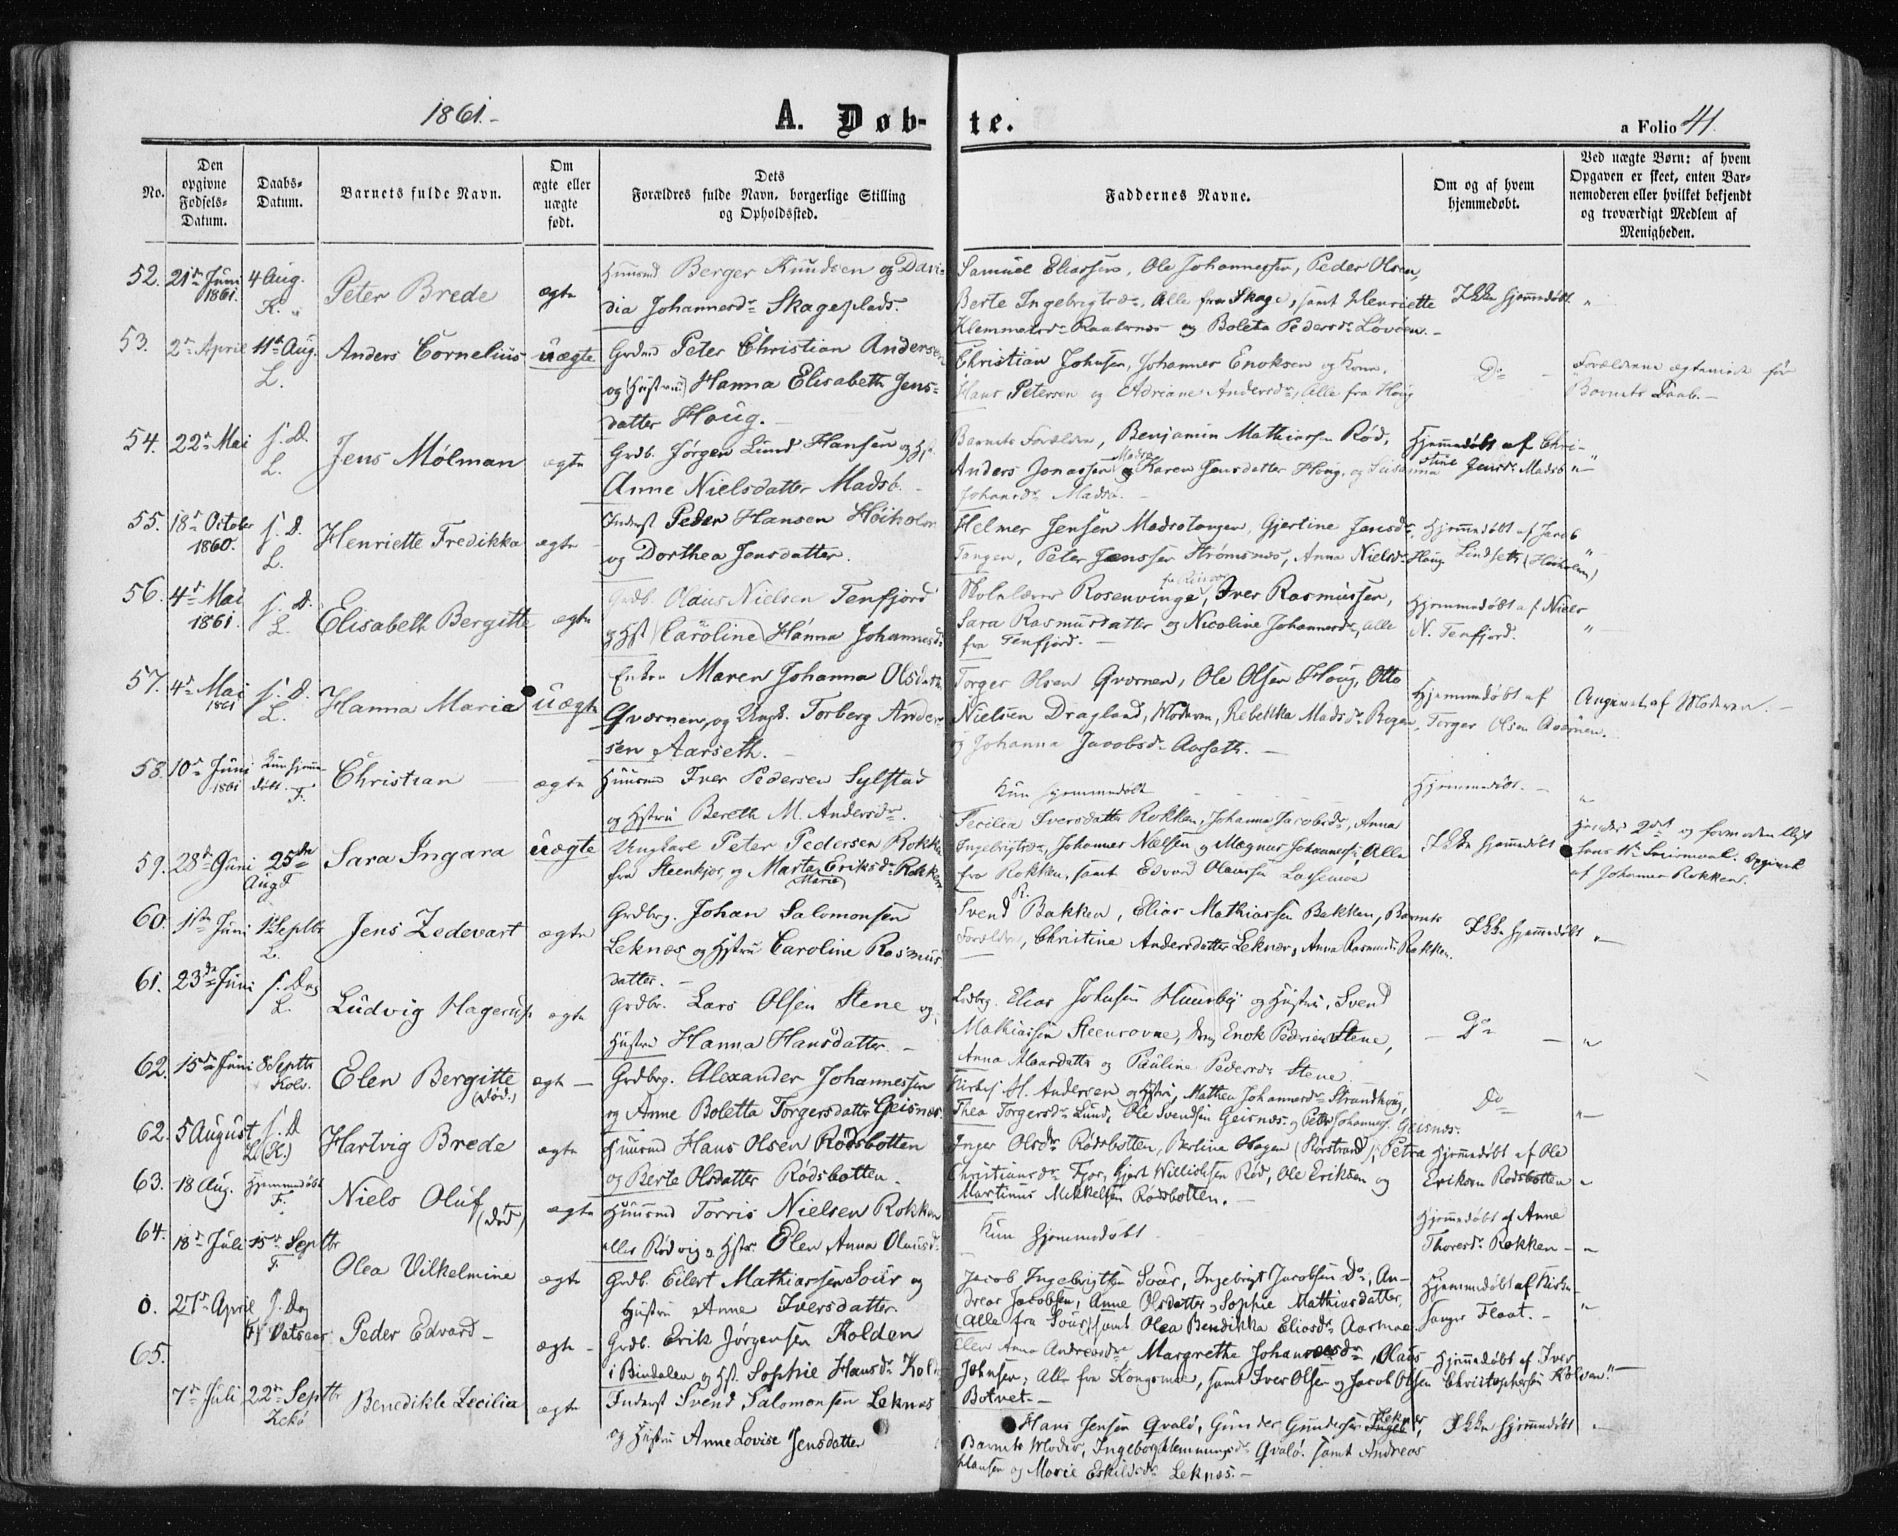 1861.
A. Døb-
te.
a Folio 41.
No.
Den opgivne Fødsels-Datum.
Daabs-Datum.
Barnets fulde Navn.
Om ægte eller uægte født.
Dets Forældres fulde Navn, borgerlige Stilling og Opholdssted.
Faddernes Navne.
Om og af hvem hjemmedøbt.
Ved uægte Børn: af hvem Opgaven er skeet, enten Barnemoderen eller hvilket bekjendt og troværdigt Medlem af Menigheden.
52. 21de Juni 1861. 4 Aug. K. Peter Brede ægte
Huusmd Berger Knudsen og Davi-
dia Johannesdr Skageplads.
Samuel Eliassen, Ole Johannessen, Peder Olsen,
Berte Ingebrigtsdr, Alle fra Skage, samt Henriette
Klemmetsdr og Boleta Pedersdr Løvøen.
Ikke hjemmedøbt. "
53. 2den April 11te Aug. L. Anders Cornelius uægte
Grdmd Peter Christian Andersen
og (Hustru) Hanna Elisabeth Jens-
datter Houg.
Christian Johnsen, Johannes Enoksen og Kone,
Hans Petersen og Adriane Andersdr, Alle fra Houg
Do
Forældrene ægteviede før
Barnets Daab.
54. 22de Mai s. D. L. Jens Mølman ægte
Grdb. Jørgen Lund Hansen og Hst.
Anne Nielsdatter Madsb.
Barnets Forældre, Benjamin Mathiassen Rød,
Anders Jonassen og Karen Jensdatter Houg, og Susanna
Johansdr Madsb.
Hjemmedøbt af Chri-
stine Jensdr Madsb "
55. 18de October 1860. s. D. L. Henriette Fredikka ægte
Inderst Peder Hansen Høiholm
og Dorthea Jonsdatter.
Helmer Jensen Madsøtangen, Gjertine Jansdr
Tangen, Peter Jenssen Strømsnes, Anna Nielsdr Houg
Hjemmedøbt af Jacob
Lindseth (Høiholm) "
56. 4de Mai 1861. s. D. L. Elisabeth Bergitte ægte
Grdb. Olaus Nielsen Tenfjord
og Hst (Caroline) Hanna Johannesdr
Skolelærer Rosenvinge, Iver Rasmussen,
Sara Rasmusdatter og Nicoline Johannesdr, alle
fra Tenfjord.
Hjemmedøbt af Niels
N. Tenfjord. "
57. 4de Mai 1861 s. D. L. Hanna Maria uægte
Enken Maren Johanna Olsdatter
Qværnen, og Ungk. Torberg Ander-
sen Aarseth.
Torger Olsen Qværnen, Ole Olsen Houg, Otto
Nielsen Dragland, Moderen, Rebekka Madsdr
og Johanna Jacobsdr Aarseth.
Hjemmedøbt af
Torger Olsen Qværnen.
Angivet af Moderen.
58. 10de Juni 1861 Kun hjemmedøbt. F. Christian ægte
Huusmd Iver Pedersen Sylstad
og Hstru Bereth M. Andersdr.
Kun hjemmedøbt
Hjemmedøbt. "
59. 28de Juni 25de Augt Sara Ingara uægte
Ungkarl Peter Pedersen Rokken
fra Steenkjær, og Marta Eriksdr Rokken
(Maria)
Cecilia Iversdatter Rokken, Johanna Jacobsdr, Anna
Ingebrigtsdr, Johannes Nielsen og Magnus Johannessen Alle
fra Rokken, samt Edvard Olaussen Lassemoe
Ikke hjemmedøbt
Hendes 2det og formodentligt
hans 1ste Leiermaal. Opgivet
af Johannes Rokken.
60. 11te Juni 1 Septbr L. Jens Zedevart ægte
Grdbrg. Johan Salomonsen
Leknæs og Hstru Caroline Rasmus-
datter.
Svend Bakken, Elias Mathiassen Bakken, Barnets
Forældre, Christine Andersdatter Leknæs, Anna Rasmusdr Rokken.
Ikke hjemmedøbt "
61. 23de Juni s. Dag L. Ludvig Hagerup ægte
Grdbr. Lars Olsen Stene og
Hustru Hanna Hansdatter.
Ldbrg. Elias Johnsen Huusby og Hustru, Svend
Mathiassen Steensovne, Enok Pedersen Stene,
Anna Larsdatter og Pauline Pedersdr Stene
Do "
62. 15de Juni 8 Septbr Kolv. Elen Bergitte (død.) ægte
Grdbrg. Alexander Johannessen
og Anne Boletta Torgersdatter Geisnæs
M. Andersen og Hstru, Mathea Johannesdr Strandhoug,
Thea Torgersdr Lund, Ole Svendsen Geisnæs og Peter Johannes. Geisnæs.
Do "
62. 5 August s. D L. (K.) Hartvig Brede ægte
Huusmd Hans Olsen Rødsbotten
og Berte Olsdatter Rødsbotten.
Inger Olsdr Rødsbotten, Berlina Obagen (Korstrand), Petra
Christiansdr Fjær, Gjert Willichsen Rød, Ole Eriksen og
Martinus Mikkelsen Rødsbotten.
Hjemmedøbt af Ole
Eriksen Rødsbotten "
63. 18 Aug. Hjemmedøbt F. Niels Oluf (død) ægte
Huusmd Torris Nielsen Rokken
eller Rødvig og Hstr. Elen Anna Olausdr
Kun hjemmedøbt.
Hjemmedøbt af Anne
Thoresdr Rokken "
64. 18de Juli 15de Septbr F. Olea Vilhelmine ægte
Grdb. Eilert Mathiassen Soür og
Hustru Anne Iversdatter
Jacob Ingebrigtsen Soür, Ingebrigt Jacobsen Do, An-
dreas Jacobsen, Anne Olsdatter og Sophie Mathiasdatter,
(Alle fra Soür) samt Olea Bendikka Eliasdr Aarmoe.
Hjemmedøbt af Kirke-
sanger Flaat. "
0. 27de April s. Dag Peder Edvard ægte
Grdb. Erik Jørgensen Kolden
i Bindalen og Hst. Sophie Hansdr Kold.
Elen Anna Andreasdr Margrethe Johannesdr, Olaus
Johnsen, Alle fra Kongsmoe, samt Iver Olsen og Jacob Olsen
Botvet.
Hjemmedøbt af Iver
Christophersen Kolden. "
65. 7de Juli 22de Septbr Benedikte Zecilia ægte
Inderst Svend Salomonsen Leknæs
og Hustru Anne Lovise Jensdatter
Hans Jensen Qvalø, Gunder Gundersen Leknæs,
Barnets Moder, Ingeborg Klemmetsdr Qvalø. samt Andreas
Hansen og Marie Eskildsdr Leknæs.
Ikke hjemmedøbt "